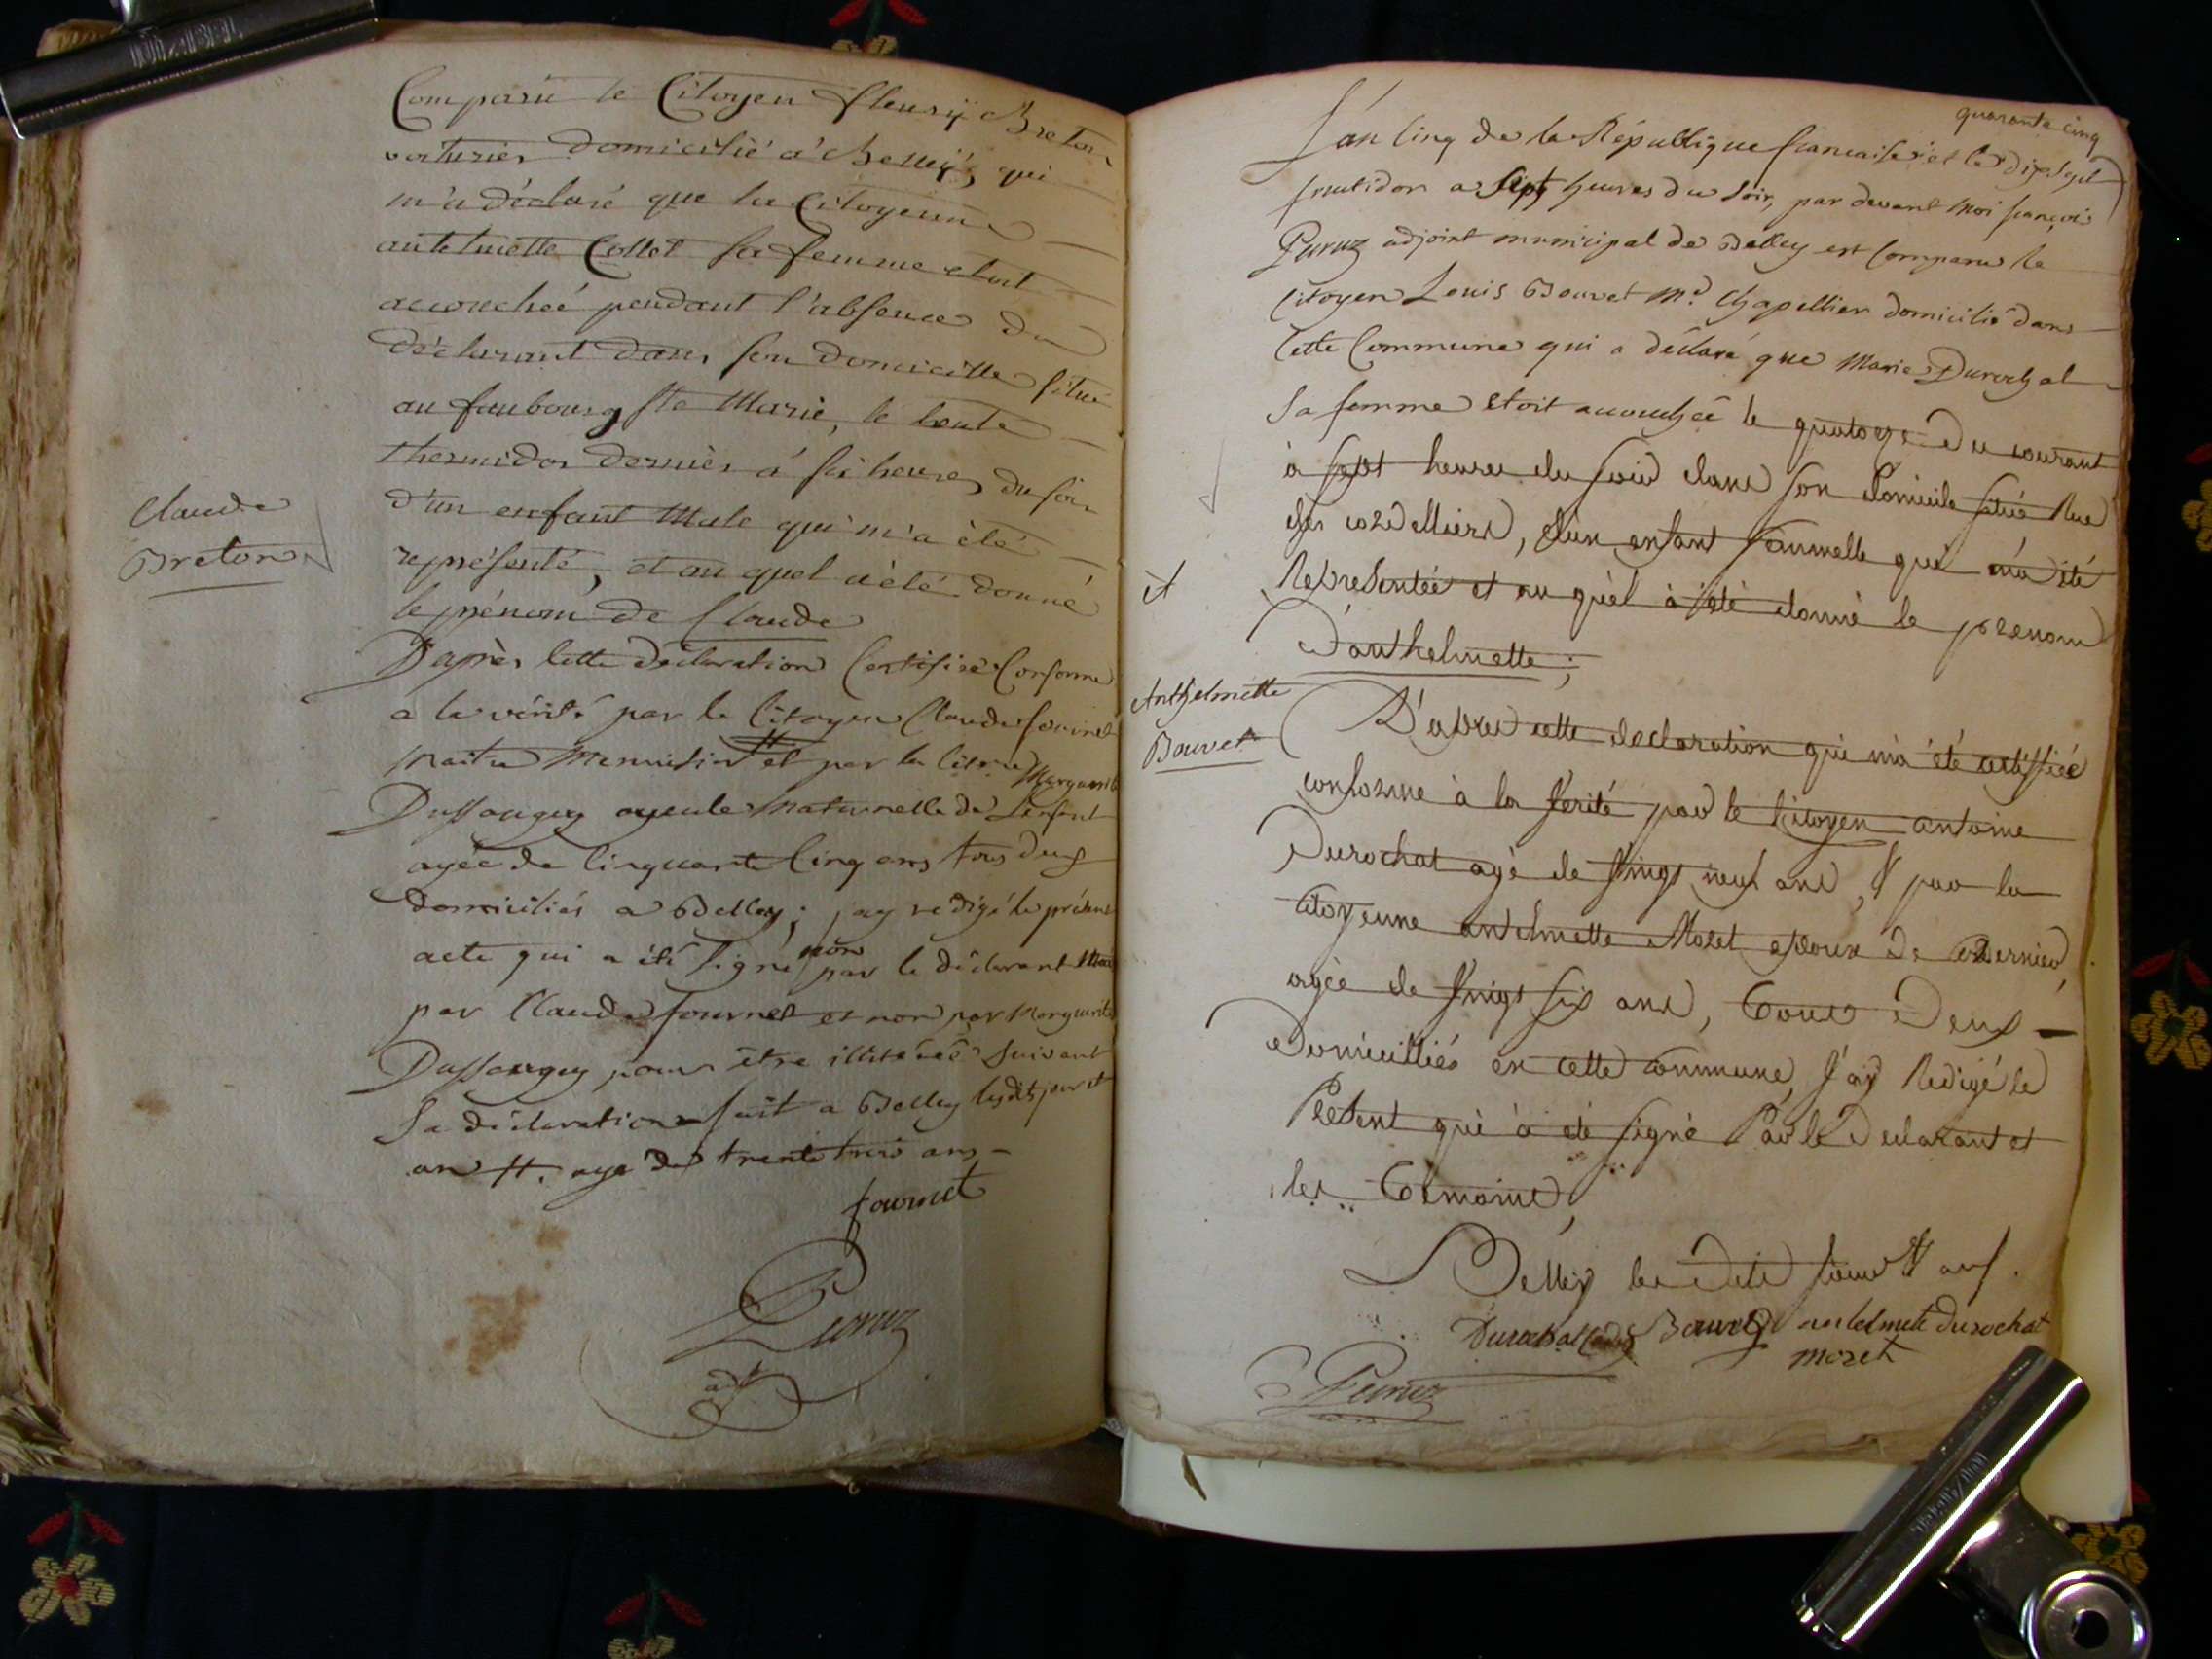 Comparu le Citoyen fleurÿ Breton
voiturier domicilié a Belleÿ, qui
m'a déclaré que la Citoyenne
antelmette Collet sa femme etoit
accouchée pendant l'absence du
déclarant dans son domicille situé
au faubourg Ste Marie, le trente
thermidor dernier à six heures du soir
d'un enfant Male qui m'a été
représenté, et au quel a été donné
le prénom de Claude
Claude
Breton
D'après cette déclaration Certifiée Conforme
a la vérité par le Citoyen Claude fournet
Maitre Menuisier # et par la Citne Marguerite
Dussaugey ayeule Maternelle de L'enfant
agée de Cinquante Cinq ans tous deux
domiciliés a Belley; j'ay redigé le présent
acte qui a été signé non par le déclarant Mais
par Claude fournet et non par Marguerite
Dussaugey pour être illiterée suivant
Sa déclaration fait a Belley lesdits jour et
an #. agé de trente trois ans
fournet
Peruz
adjt
quarante cinq
L'an Cinq de la République francaise et le dix sept
fructidor a Sept heures du soir, par devant Moi françois
Peruz adjoint municipal de Belley est Comparu le
Citoyen Louis Bouvet Md Chapellier domicilié dans
Cette Commune qui a déclaré que Marie Durochat
Sa femme etoit accouchée le quatorze du courant
à sept heures du soir dans son domicile situé Rue
des cordelliers, d'un enfant faumelle qui m'a été
Representée et au quel à été donné le prenom
D'anthelmette;
et
Anthelmette
Bouvet
D'apres cette declaration qui m'a été certiffiée
conforme à la Verité par le Citoyen antoine
Durochat agé de Vingt neuf ans, & par la
Citoyenne antelmette Moret epouse de ce dernier,
agée de Vingt six ans, Tous Deux
Domicilliés en cette commune, J'ay Redigé le
Present qui à été signé Par le Declarant et
les Temoins,
Belley les Dits Jour & an
Durochat Bouvet antelmete durochat
moret
Peruz